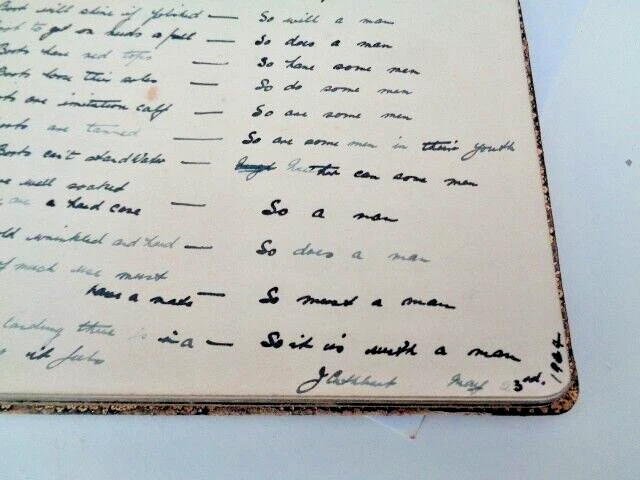 Boot will shine if polished — So will a man
to get on needs a pull — So does a man
Boots have red tops — So have some men
Boots lose their soles — So do some men
are imitation calf — So are some men
are tanned — So are some men in their youth
Boots can't stand Water — Neither can some men
well soaked
are a hard case — So a man
wrinkled and hard — So does a man
much use must
have a mate — So must a man
in a — So it is with a man
it
J Cuthbert May 3rd. 1904